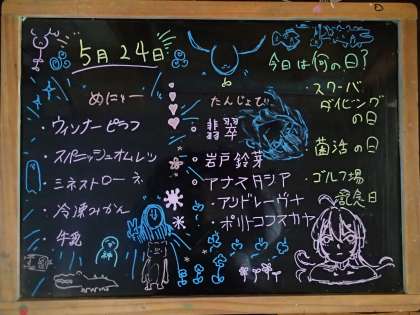 5月24日
めにゅー
・ウィンナーピラフ
・スパニッシュオムレツ
・ミネストローネ
・冷凍みかん
・牛乳
たんじょうび
・翡翠
・岩戸鈴芽
・アナスタシア
・アンドレーヴナ
・ポリトコフスカヤ
今日は何の日?
・スクーバ
ダイビング
の日
・菌活の日
・ゴルフ場
記念日